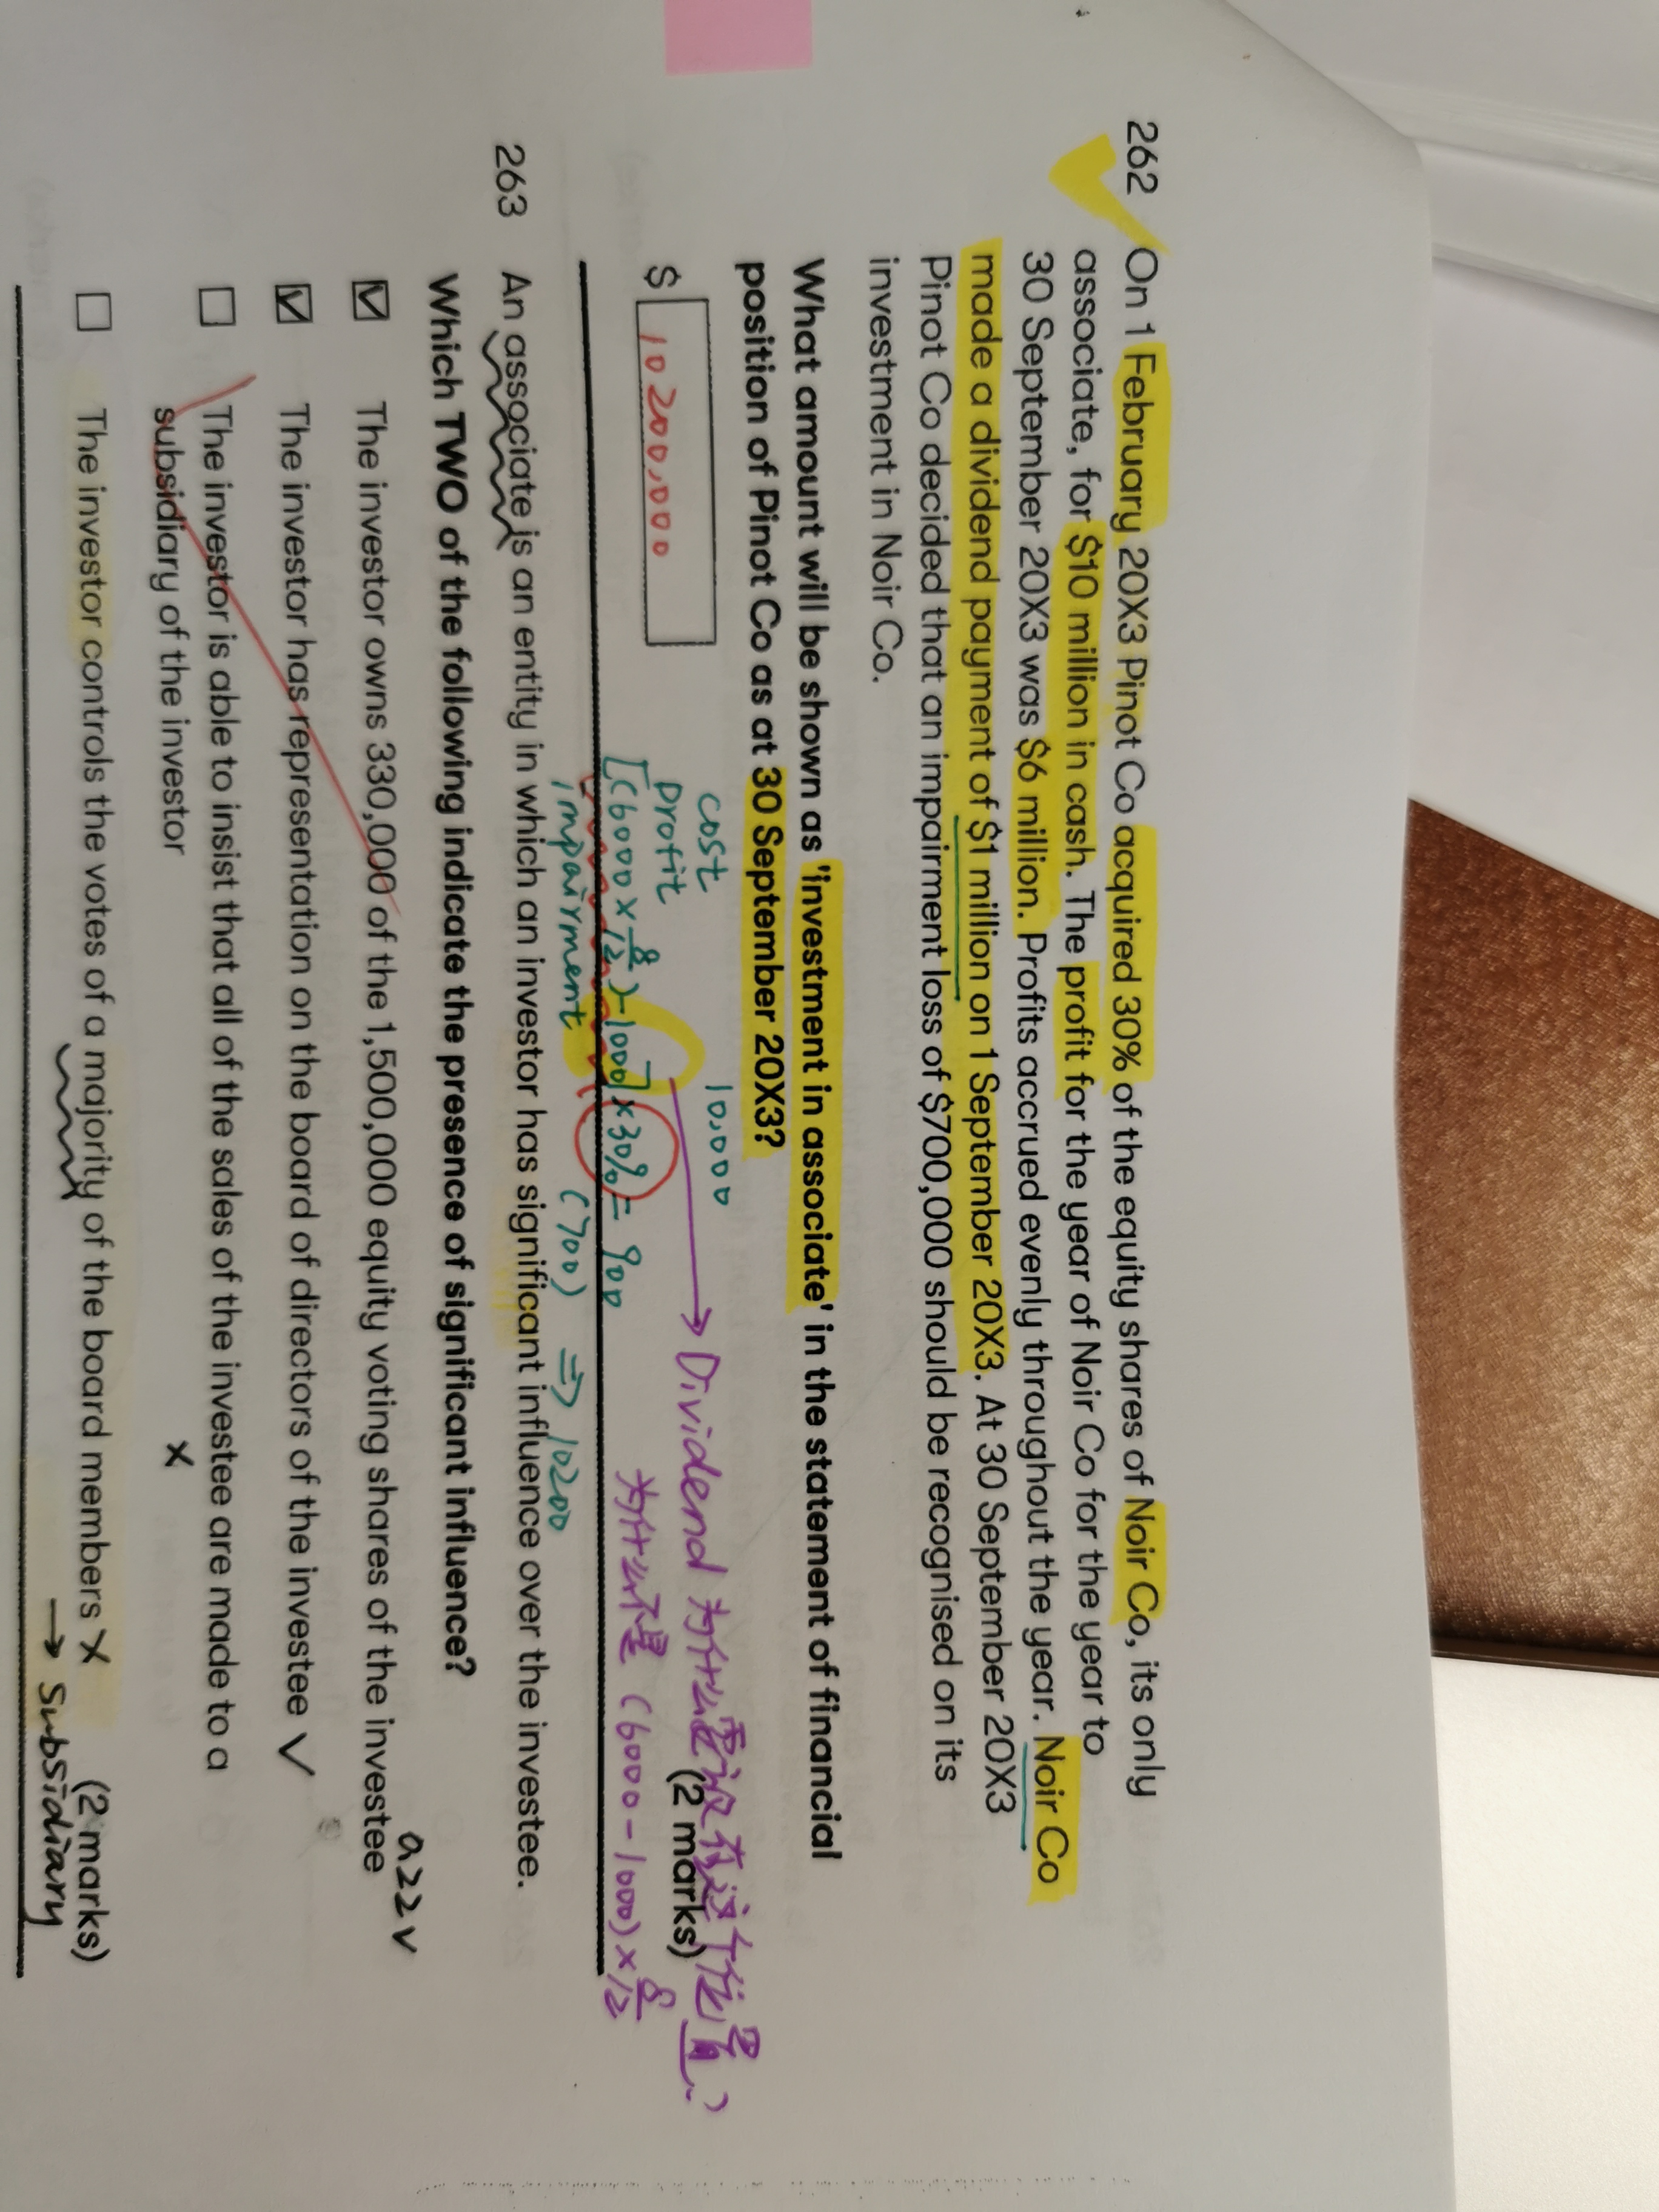 262 On 1 February 20X3 Pinot Co acquired 30% of the equity shares of Noir Co, its only
associate, for $10 million in cash. The profit for the year of Noir Co for the year to
30 September 20X3 was $6 million. Profits accrued evenly throughout the year. Noir Co
made a dividend payment of $1 million on 1 September 20X3. At 30 September 20X3
Pinot Co decided that an impairment loss of $700,000 should be recognised on its
investment in Noir Co.
What amount will be shown as 'investment in associate' in the statement of financial
position of Pinot Co as at 30 September 20X3?
$ 10 200,000
cost 10,000
profit
[(6000 × 8/12) - 1000] × 30% = 900
impairment (700) ⇒ 10200
→ Dividend 为什么要放在这个位置?
为什么不是 (6000 - 1000) × 8/12
(2 marks)
263 An associate is an entity in which an investor has significant influence over the investee.
Which TWO of the following indicate the presence of significant influence?
☑ The investor owns 330,000 of the 1,500,000 equity voting shares of the investee 0.22 √
☑ The investor has representation on the board of directors of the investee √
☐ The investor is able to insist that all of the sales of the investee are made to a
subsidiary of the investor ×
☐ The investor controls the votes of a majority of the board members ×
(2 marks)
→ Subsidiary